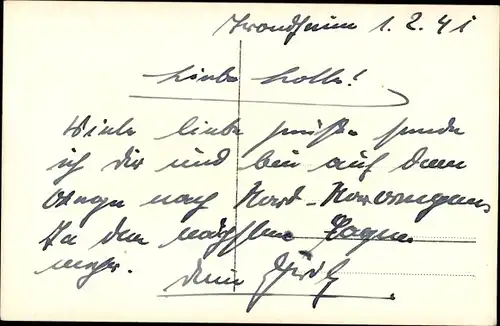 Trondheim 1.2.41
Liebe Lotte!
Viele liebe Grüße sende
ich Dir und bin auf dem
Wege nach Nord-Norwegen.
In den nächsten Tagen
mehr.
Dein